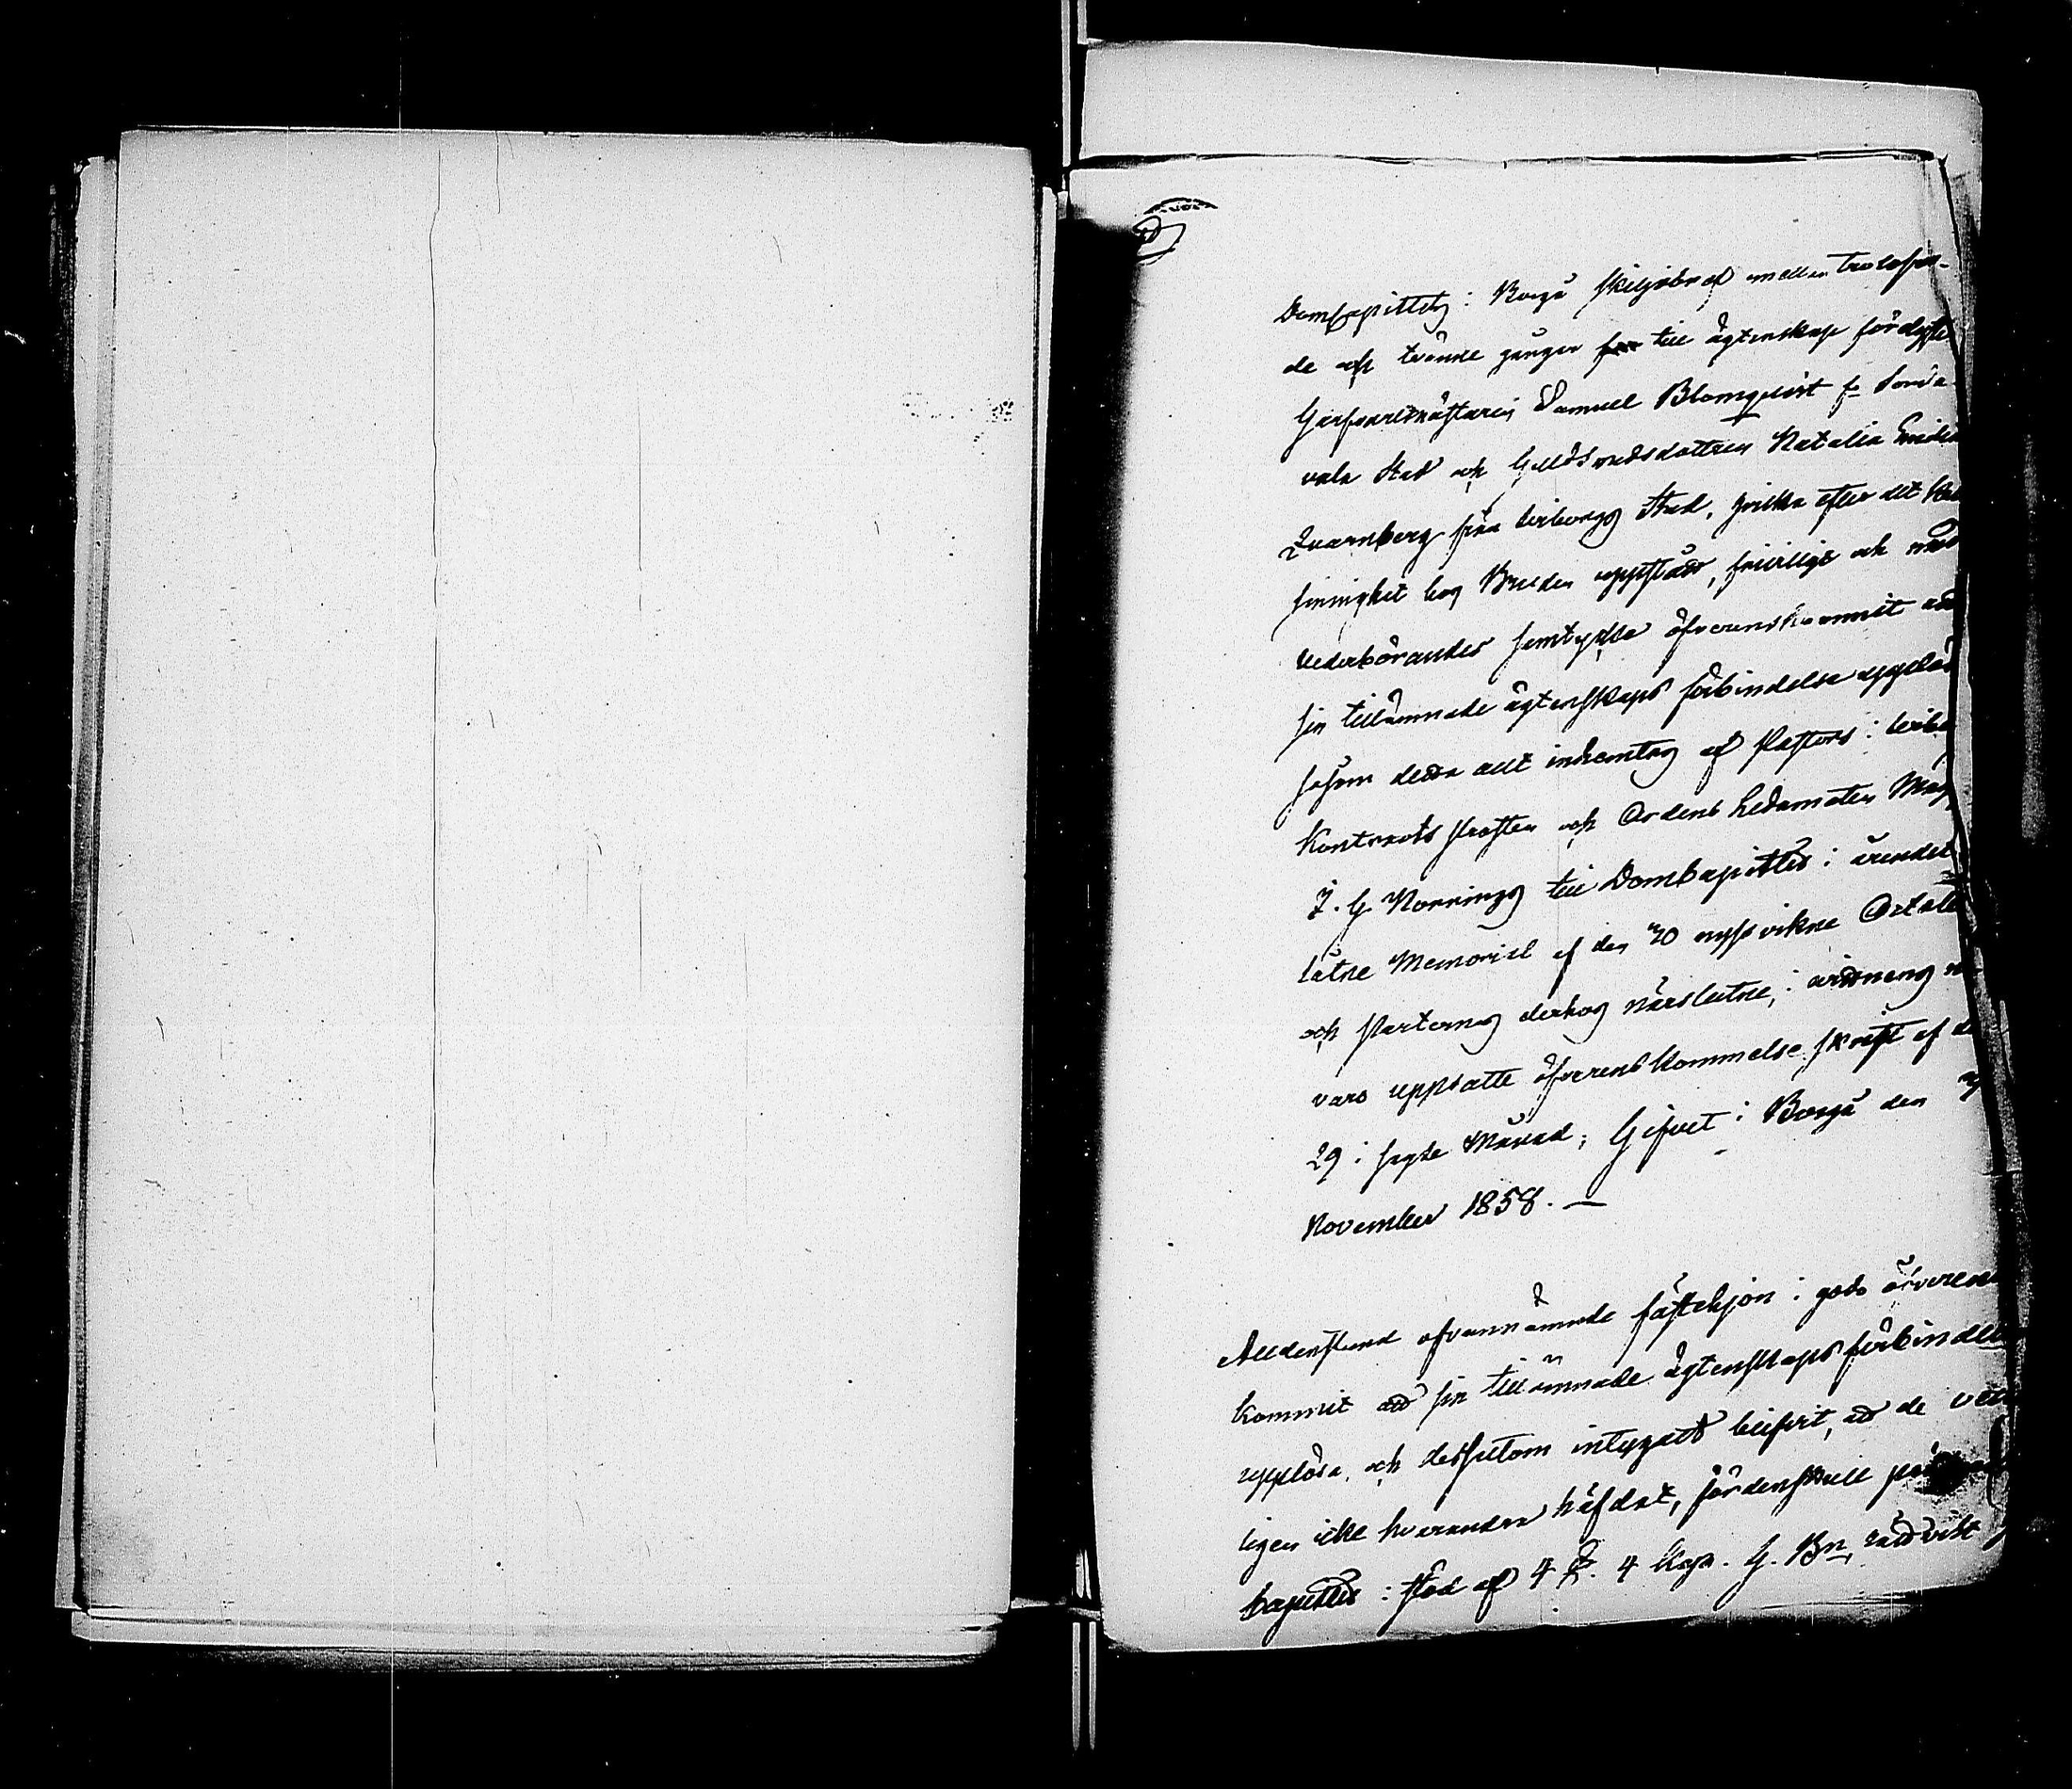 Domkapitlets i Borgå skiljobref emellan trolofva-
de och tränne gånger till ägtenskap förlyste
Garfvaremästaren Samuel Blomqvist fr. Sorda-
vala Stad och Guldsmedsdottren Natalia
Quarnberg från Wiborgs Stad, hvilka efter det
sinnighet hos Bruden uppstådt, frivilligt och med
vederbörandes samtycke öfverenskommit att
sin tillämnade ägtenskaps förbindelse upplösa
såsom detta allt inhemtas af Pastors i
Kontrakts Prosten och Ordens Ledamoten Mag
J. G. Norrings till Domkapitlet i ärendet
låtne Memorial af den 30 nyss vikne October
och Parternas derhos närslutne, i
varo uppsatte öfverenskommelse skrift af den
29 i sagde Månad; Gifvet i Borgå den
November 1858. —
Alldenstund ofvannämnde fästehjon i godo öfverens
kommit att sin tillämnade ägtenskaps förbindelse
upplösa, och dessutom intygadt blifvit, att de
ligen icke hvarandra häfdat, fördenskull
kapitlet i stöd af 4 §. 4 Kap. G. Bn,